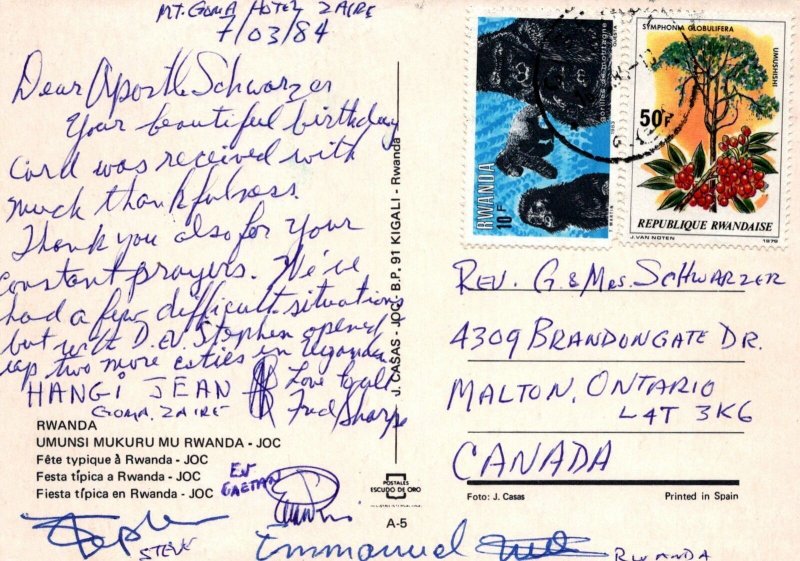 MT. GOMA HOTEL ZAIRE
7/03/84
Dear Apostle Schwarzer
Your beautiful birthday
Card was received with
much thankfulness.
Thank you also for your
constant prayers. We've
had a few difficult situations
but with D. Ev. Stephen opened
up two more cities in Uganda.
HANGI JEAN
GOMA, ZAIRE
Love to all
Fred Sharpe
RWANDA
UMUNSI MUKURU MU RWANDA - JOC
Fête typique à Rwanda - JOC
Festa típica a Rwanda - JOC
Fiesta típica en Rwanda - JOC
EV
GAETAN
Stephen
STEVE
Emmanuel
RWANDA
J. CASAS - JOC - B.P. 91 KIGALI - Rwanda
POSTALES
ESCUDO DE ORO
A-5
RWANDA
10F
1983
SYMPHONIA GLOBULIFERA
UMUSHISHI
50F
REPUBLIQUE RWANDAISE
J. VAN NOTEN
1979
REV. G. & MRS. SCHWARZER
4309 BRANDONGATE DR.
MALTON, ONTARIO
L4T 3K6
CANADA
Foto: J. Casas
Printed in Spain